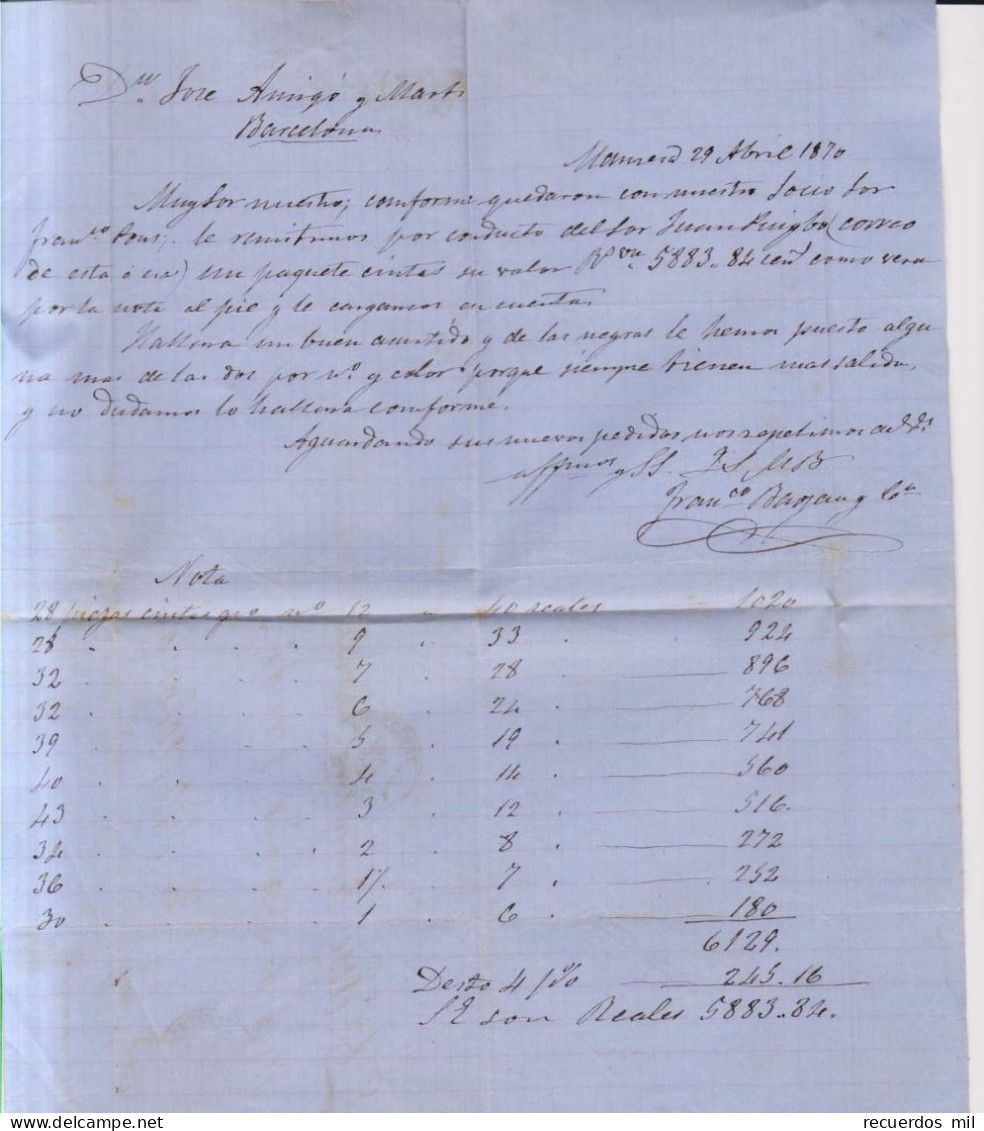 Dn. Jose Amigó y Marti
Barcelona
Manresa 29 Abril 1870
Muy Sor nuestro; conforme quedaron con nuestro Socio Sor
Franco Pons; le remitimos por conducto del Sor Juan Puigbo (correo
de esta a esa) un paquete cintas su valor Rs vn 5883..84 cens como vera
por la nota al pie y le cargamos en cuenta.
Hallara un buen asurtido y de las negras le hemos puesto algu
na mas de las dos por no. y color porque siempre tienen mas salida,
y no dudamos lo hallara conforme.
Aguardando sus nuevos pedidos nos repetimos de
affmos y SS. Q S M B
Franco y Ca
Nota
28 piezas cintas gro no 12 a 40 reales 1020
28 . . . . 9 . 33 . 924
32 . . . . 7 . 28 . 896
32 . . . . 6 . 24 . 768
39 . . . . 5 . 19 . 741
40 . . . . 4 . 14 . 560
43 . . . . 3 . 12 . 516.
34 . . . . 2 . 8 . 272
36 . . . . 1½ . 7 . 252
30 . . . . 1 . 6 . 180
6129.
Desto 4 p% 245.16
SE son Reales 5883..84.
recuerdos mil